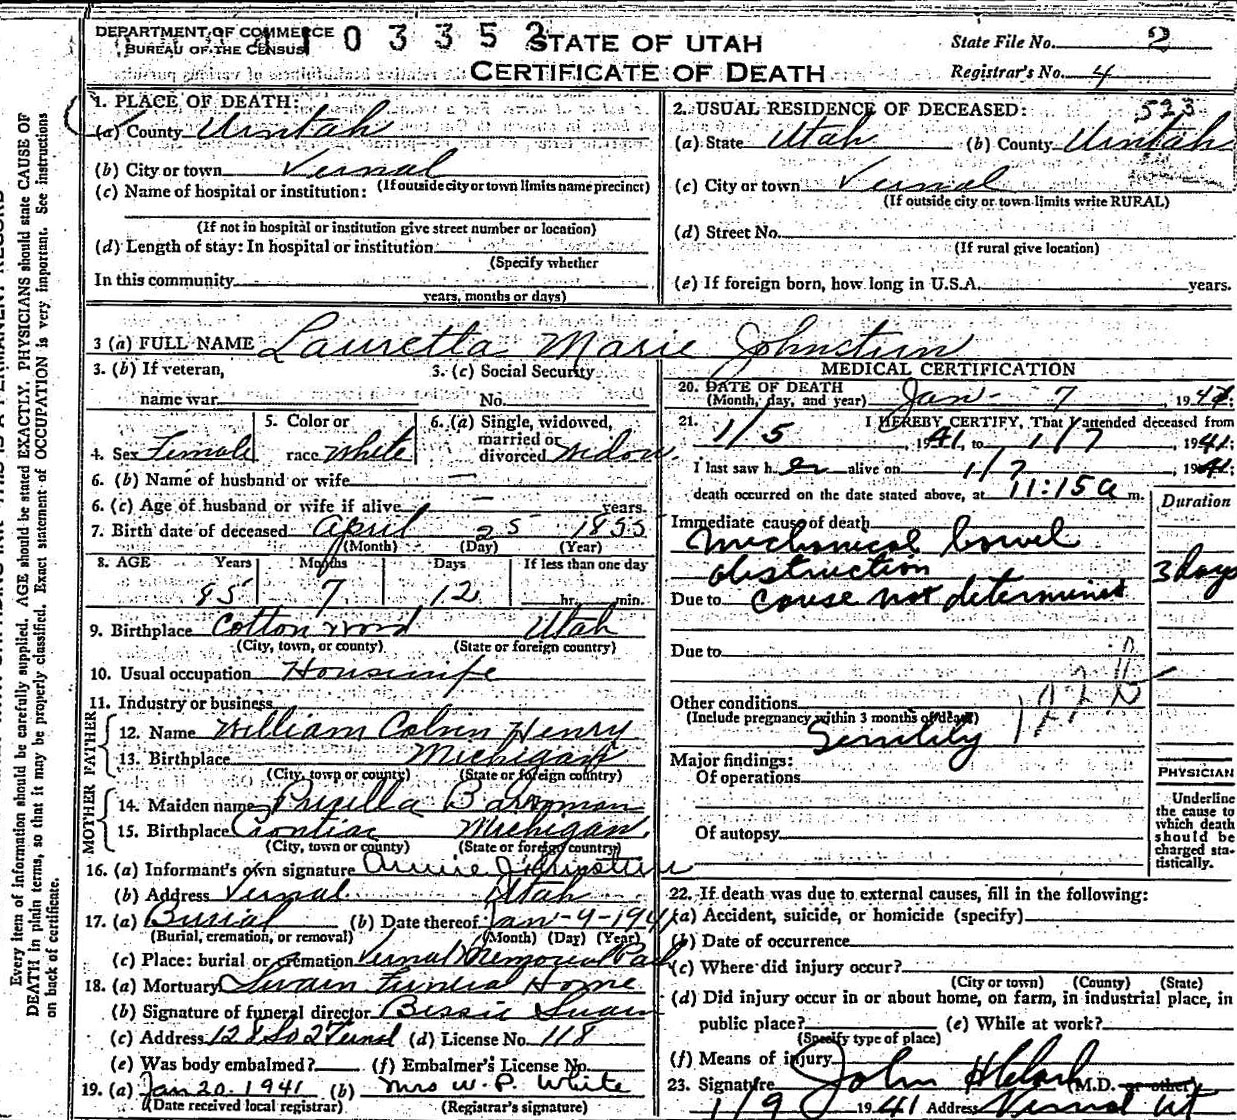 DEPARTMENT OF COMMERCE
BUREAU OF THE CENSUS
1 0 3 3 5 2
STATE OF UTAH
CERTIFICATE OF DEATH
State File No. 2
Registrar's No. 4
1. PLACE OF DEATH:
(a) County Uintah
(b) City or town Vernal
(If outside city or town limits name precinct)
(c) Name of hospital or institution:
(If not in hospital or institution give street number or location)
(d) Length of stay: In hospital or institution
(Specify whether
In this community
years, months or days)
2. USUAL RESIDENCE OF DECEASED:
523
(a) State Utah (b) County Uintah
(c) City or town Vernal
(If outside city or town limits write RURAL)
(d) Street No.
(If rural give location)
(e) If foreign born, how long in U.S.A. years.
3 (a) FULL NAME Lauretta Marie Johnstun
3. (b) If veteran,
name war
3. (c) Social Security
No.
4. Sex Female
5. Color or
race White
6. (a) Single, widowed,
married or
divorced Widow
6. (b) Name of husband or wife —
6. (c) Age of husband or wife if alive — years.
7. Birth date of deceased April 25 1855
(Month) (Day) (Year)
8. AGE Years Months Days If less than one day
85 7 12 hr. min.
9. Birthplace Cottonwood Utah
(City, town, or county) (State or foreign country)
10. Usual occupation Housewife
11. Industry or business
FATHER
12. Name William Colvin Henry
13. Birthplace Michigan
(City, town or county) (State or foreign country)
MOTHER
14. Maiden name
15. Birthplace Pontiac Michigan
(City, town or county) (State or foreign country)
16. (a) Informant's own signature Annie Johnstun
(b) Address Vernal Utah
17. (a) Burial (b) Date thereof Jan-9-1941
(Burial, cremation, or removal) (Month) (Day) (Year)
(c) Place: burial or cremation Vernal Memorial Park
18. (a) Mortuary Swain Funeral Home
(b) Signature of funeral director Bessie Swain
(c) Address 128 So 2 Vernal (d) License No. 118
(e) Was body embalmed? (f) Embalmer's License No.
19. (a) Jan 20. 1941 (b) Mrs W. P. White
(Date received local registrar) (Registrar's signature)
MEDICAL CERTIFICATION
20. DATE OF DEATH
(Month, day, and year) Jan - 7, 1941:
21. I HEREBY CERTIFY, That I attended deceased from
1/5, 1941, to 1/7, 1941;
I last saw her alive on 1/7, 1941;
death occurred on the date stated above, at 11:15 a m.
Duration
Immediate cause of death
Mechanical bowel
obstruction
3 days
Due to cause not determined
Due to
Other conditions
(Include pregnancy within 3 months of death)
Senility
122 B
Major findings:
Of operations
Of autopsy
PHYSICIAN
Underline
the cause to
which death
should be
charged sta-
tistically.
22. If death was due to external causes, fill in the following:
(a) Accident, suicide, or homicide (specify)
(b) Date of occurrence
(c) Where did injury occur?
(City or town) (County) (State)
(d) Did injury occur in or about home, on farm, in industrial place, in
public place? (e) While at work?
(Specify type of place)
(f) Means of injury
23. Signature John M.D. or other
1/9 1941 Address Vernal Ut
Every item of information should be carefully supplied. AGE should be stated EXACTLY. PHYSICIANS should state CAUSE OF
DEATH in plain terms, so that it may be properly classified. Exact statement of OCCUPATION is very important. See instructions
on back of certificate.